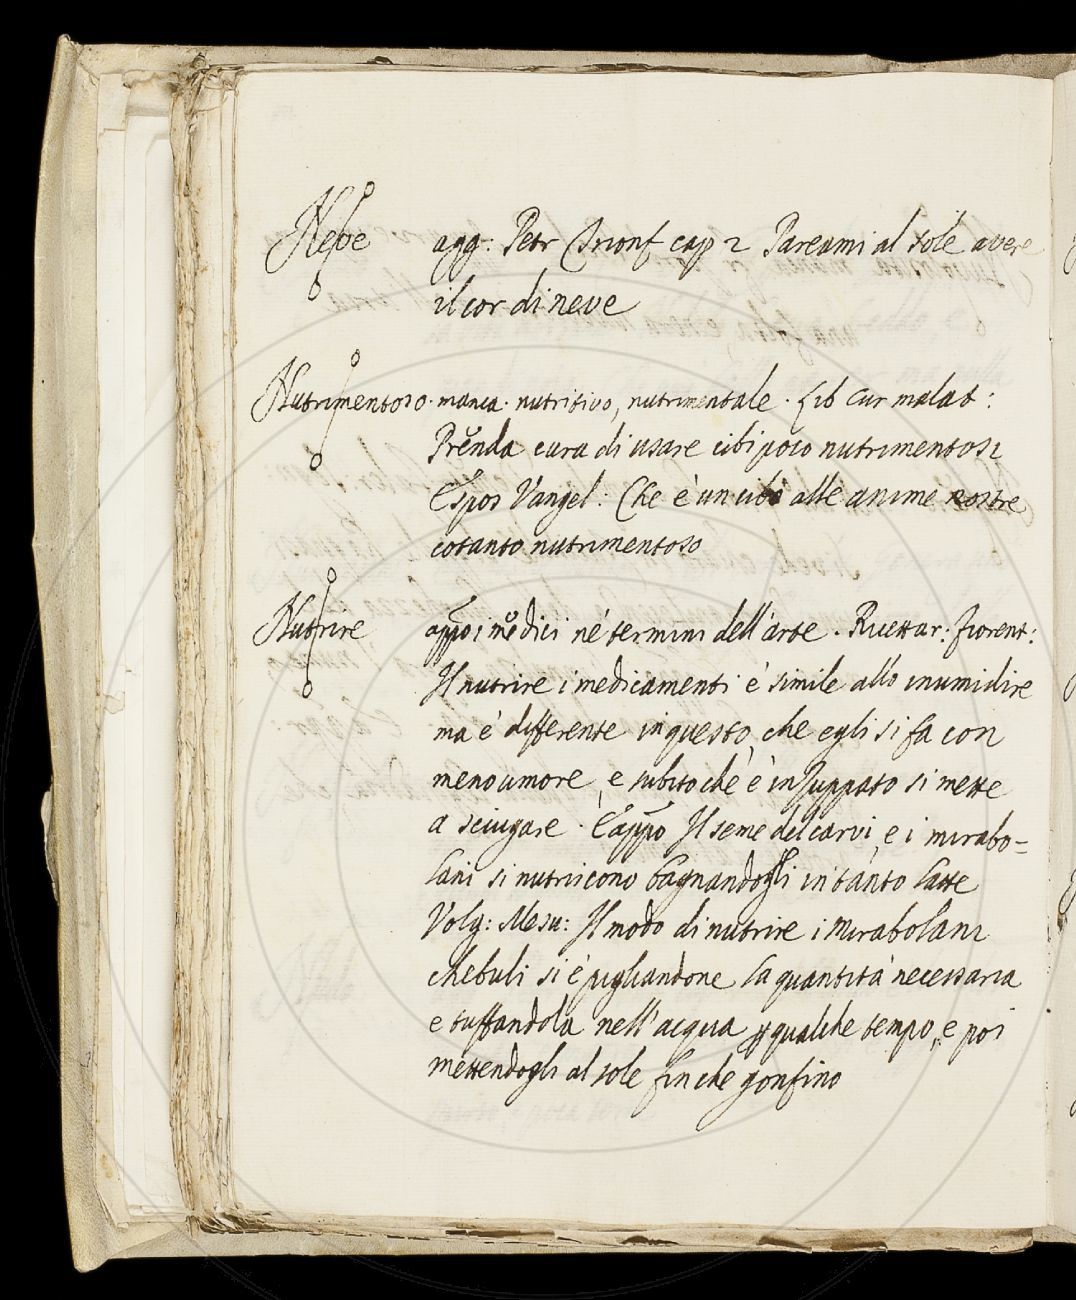 Neve agg: Petr Trionf cap 2 Pareami al sole avere
il cor di neve
Nutrimentoso. manca. nutritivo, nutrimentale. Lib cur malat:
Prenda cura di usare cibi poco nutrimentosi
Espos Vangel: Che è un cibo alle anime nostre
cotanto nutrimentoso
Nutrire appo i medici ne' termini dell'arte. Ricettar: fiorent:
Il nutrire i medicamenti è simile allo inumidire
ma è differente in questo, che egli si fa con
meno umore, e subito che è inzuppato si mette
a sciugare. E appo Il seme del carvi, e i mirabo=
lani si nutriscono bagnandogli in tanto latte
Volg: Mesu: Il modo di nutrire i Mirabolani
chebuli si è pigliandone la quantità necessaria
e tuffandola nell'acqua p qualche tempo, e poi
mettendogli al sole finche gonfino